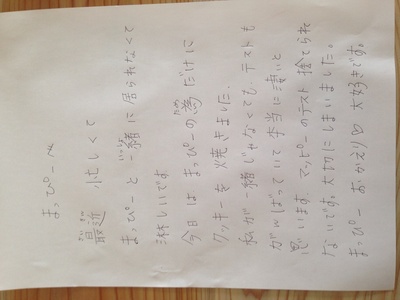 まっぴーへ
最近 忙しくて
さいきん
まっぴーと一緒に居られなくて
いっしょ
淋しいです
今日は まっぴーの為だけに
ため
クッキーを焼きました.
私が一緒じゃなくても、テストも
がんばっていて本当に凄いと
思います. マッピーのテスト捨てられ
ないです。大切にしまいました。
まっぴー おかえり♡ 大好きです。